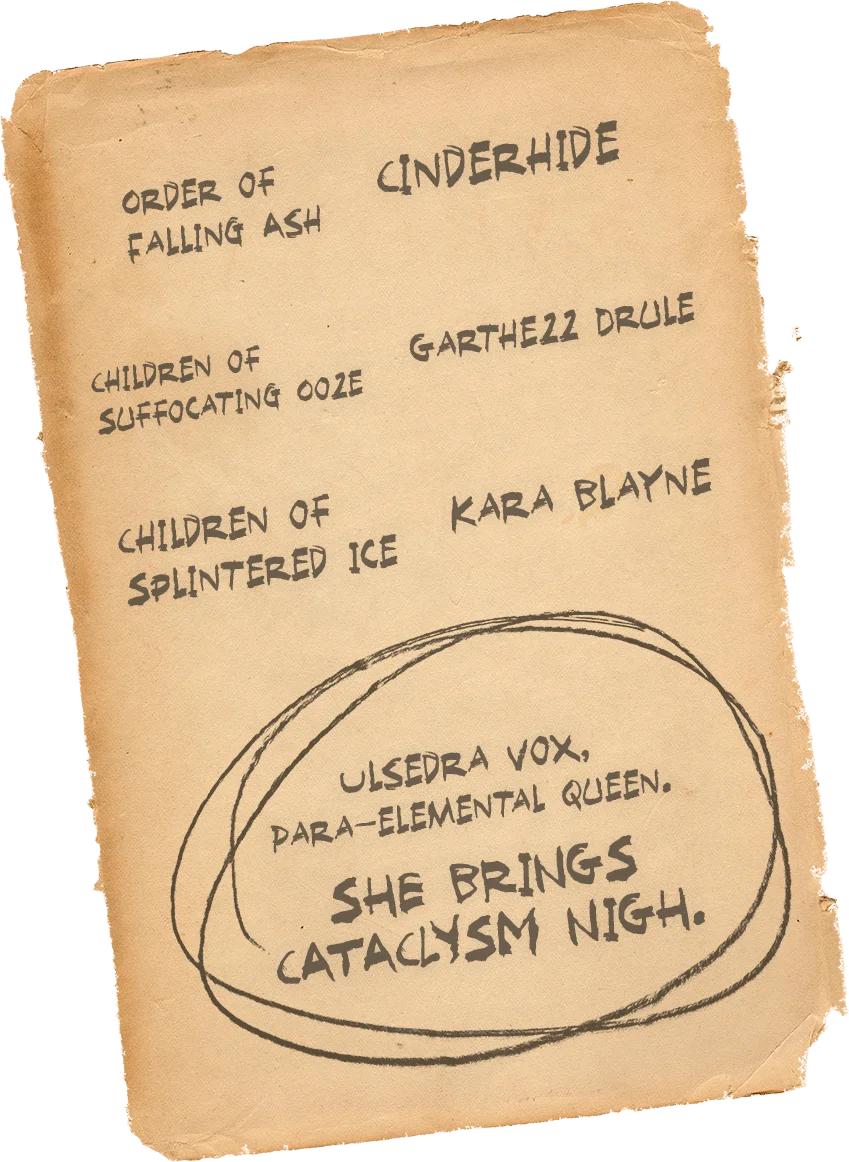 ORDER OF
FALLING ASH
CINDERHIDE
CHILDREN OF
SUFFOCATING OOZE
GARTHEZZ DRULE
CHILDREN OF
SPLINTERED ICE
KARA BLAYNE
ULSEDRA VOX,
PARA-ELEMENTAL QUEEN.
SHE BRINGS
CATACLYSM NIGH.